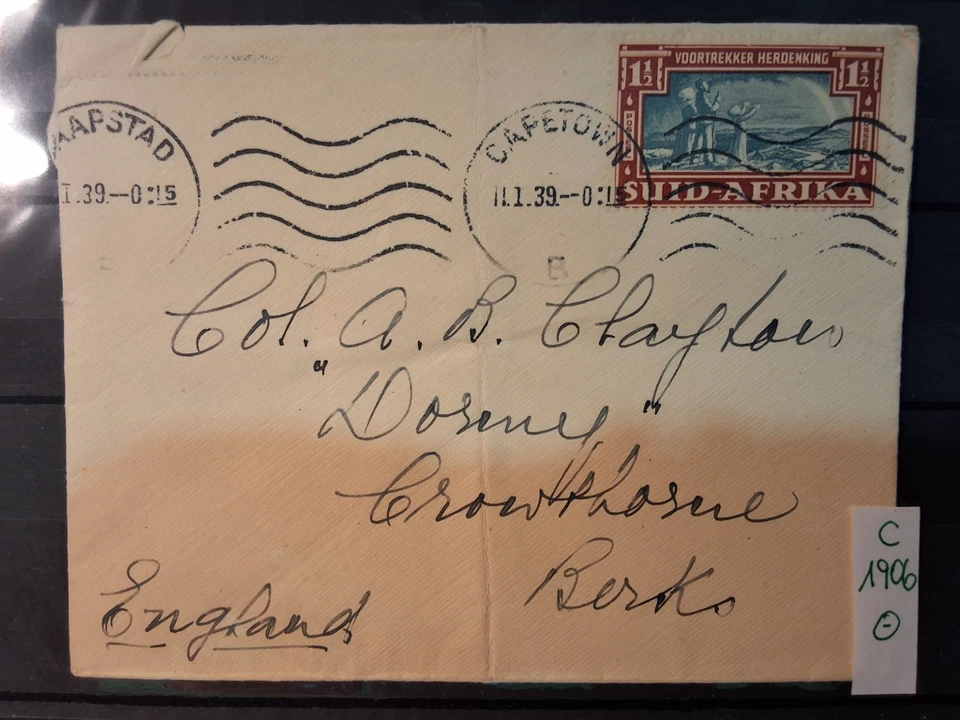 VOORTREKKER HERDENKING
1½ 1½
SUID-AFRIKA
AAPSTAD
I.39.--0:15
CAPETOWN
11.1.39.--0:15
B
Col. A. B. Clayton
"Dorney"
Crowthorne
Berks.
England
C
1906